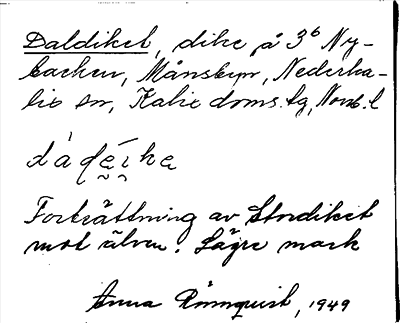 Daldiket, dike på 3⁶ Ny-
backen, Månsbyn, Nederka-
lix sn, Kalix doms.tg, Norrb. l
Fortsättning av Stordiket
mot älven. Lägre mark
Anna Rönnquist, 1949